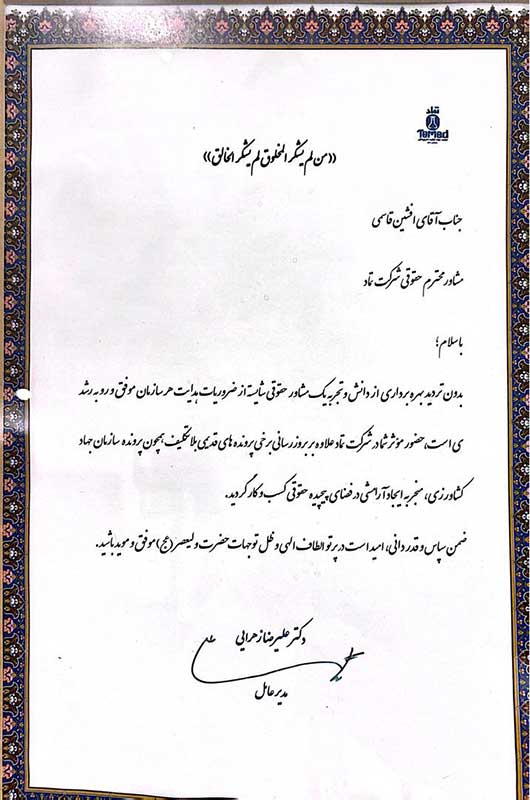 تماد
Temad
((من لم یشکر المخلوق لم یشکر الخالق))
جناب آقای افشین قاسمی
مشاور محترم حقوقی شرکت تماد
باسلام؛
بدون تردید بهره برداری از دانش و تجربه یک مشاور حقوقی شایسته از ضروریات هدایت هر سازمان موفق و رو به رشد
ی است، حضور مؤثر شما در شرکت تماد علاوه بر بروز رسانی برخی پرونده های قدیمی بلاتکلیف همچون پرونده سازمان جهاد
کشاورزی، منجر به ایجاد آرامشی در فضای پیچیده حقوقی کسب و کار گردید.
ضمن سپاس و قدردانی، امید است در پرتو الطاف الهی و ظل توجهات حضرت ولیعصر (عج) موفق و موید باشید.
دکتر علیرضا زهرایی
مدیر عامل